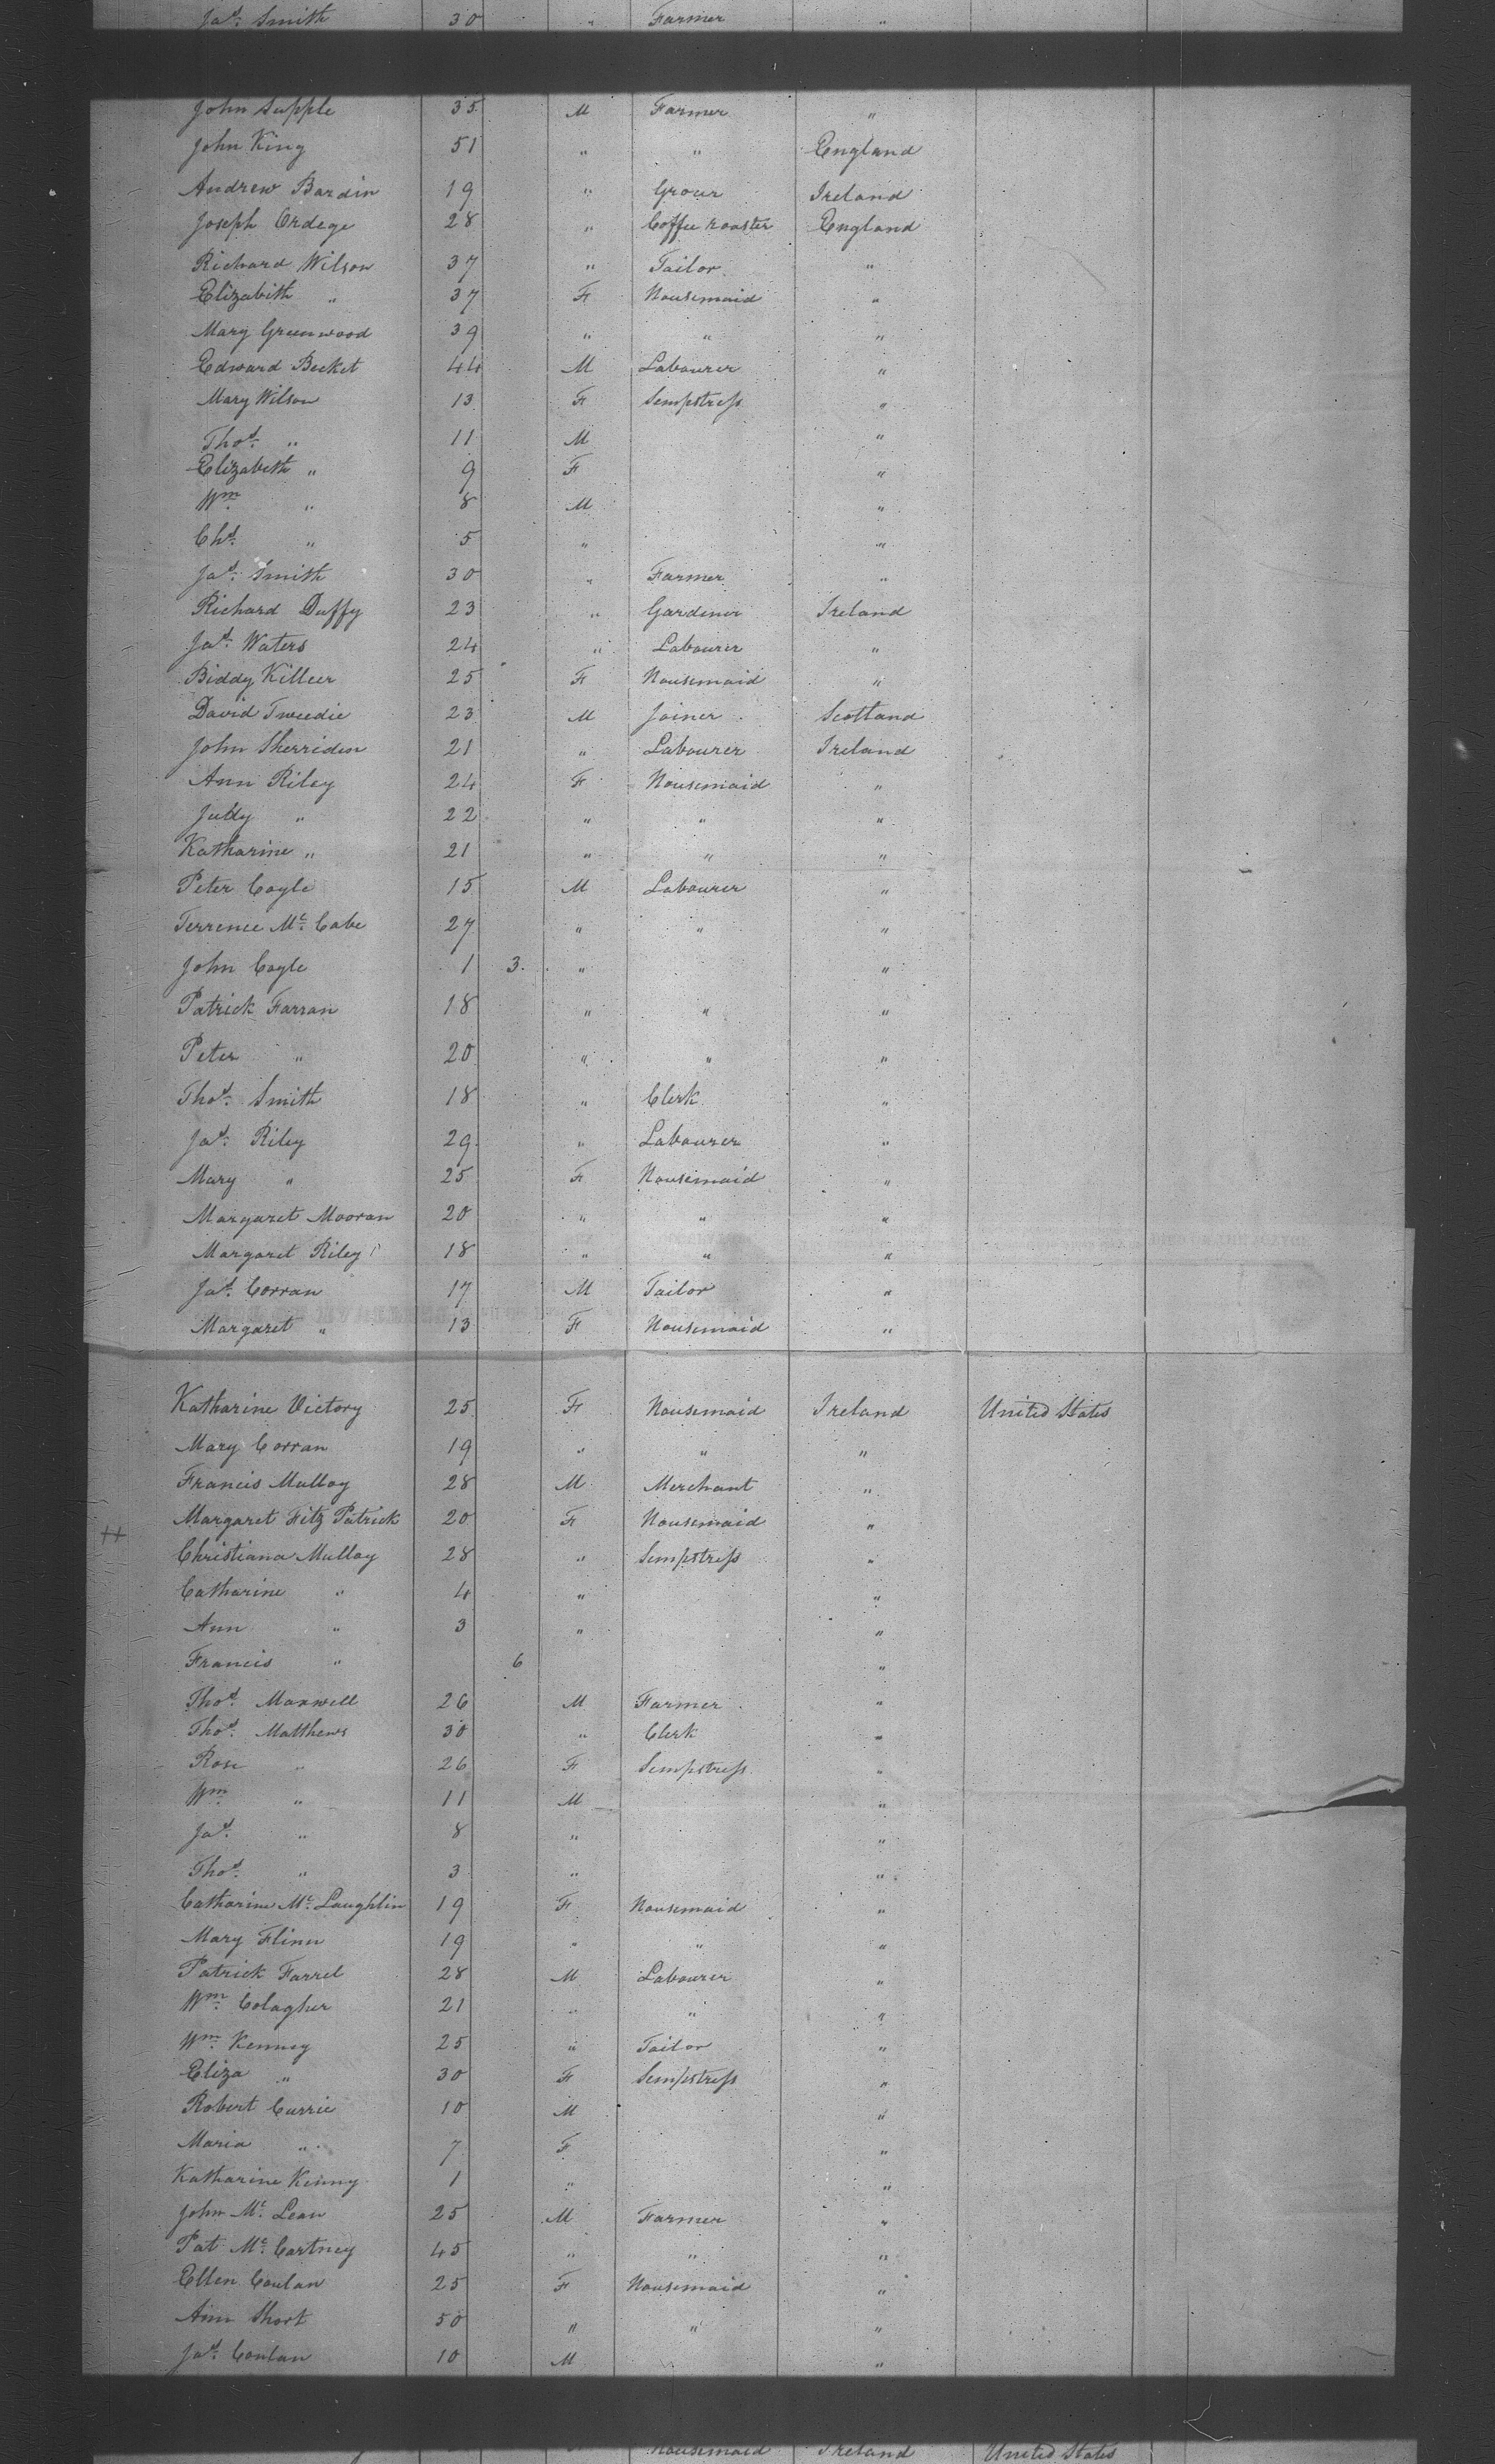 Jas. Smith 30 " Farmer "
John Supple 35 M Farmer "
John King 51 " " England
Andrew Bardin 19 " Grocer Ireland
Joseph Ordege 28 " Coffee roaster England
Richard Wilson 37 " Tailor "
Elizabeth " 37 F Housemaid "
Mary Greenwood 39 " " "
Edward Becket 44 M Labourer "
Mary Wilson 13 F Sempstress "
Thos. " 11 M "
Elizabeth " 9 F "
Wm. " 8 M "
Chs. " 5 " "
Jas. Smith 30 " Farmer "
Richard Duffy 23 " Gardener Ireland
Jas. Waters 24 " Labourer "
Biddy Killeer 25 F Housemaid "
David Tweedie 23 M Joiner Scotland
John Sherriden 21 " Labourer Ireland
Ann Riley 24 F Housemaid "
Judy " 22 " " "
Katharine " 21 " " "
Peter Coyle 15 M Labourer "
Terrence Mc. Cabe 27 " " "
John Coyle 1 3 " "
Patrick Farran 18 " " "
Peter " 20 " " "
Thos. Smith 18 " Clerk "
Jas. Riley 29 " Labourer "
Mary " 25 F Housemaid "
Margaret Mooran 20 " " "
Margaret Riley 18 " " "
Jas. Corran 17 M Tailor "
Margaret " 13 F Housemaid "
Katharine Victory 25 F Housemaid Ireland United States
Mary Corran 19 " " "
Francis Mulloy 28 M Merchant "
Margaret Fitz Patrick 20 F Housemaid "
Christiana Mulloy 28 " Sempstress "
Catharine " 4 " "
Ann " 3 " "
Francis " 6 "
Thos. Maxwell 26 M Farmer "
Thos. Matthews 30 " Clerk "
Rose " 26 F Sempstress "
Wm. " 11 M "
Jas. " 8 " "
Thos. " 3 " "
Catharine Mc. Laughlin 19 F Housemaid "
Mary Flinn 19 " " "
Patrick Farrel 28 M Labourer "
Wm. Colagher 21 " " "
Wm. Kenney 25 " Tailor "
Eliza " 30 F Sempstress "
Robert Currie 10 M "
Maria " 7 F "
Katharine Kenny 1 " "
John Mc. Lean 25 M Farmer "
Pat Mc. Cartney 45 " " "
Ellen Conlan 25 F Housemaid "
Ann Short 50 " " "
Jas. Conlan 10 M "
Housemaid Ireland United States